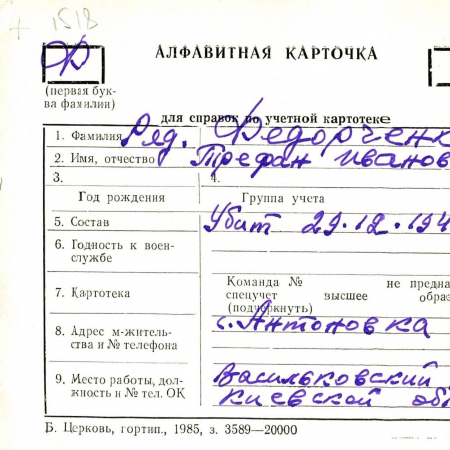 + 1518
Ф
АЛФАВИТНАЯ КАРТОЧКА
(первая бук-
ва фамилии)
для справок по учетной картотеке
1. Фамилия Ряд. Федорченк
2. Имя, отчество Трефан Иванов
3. 4.
Год рождения Группа учета
5. Состав Убит 29.12.194
6. Годность к воен-
службе
Команда № не предна
7. Картотека спецучет высшее образ
(подчеркнуть)
8. Адрес м-житель-
ства и № телефона с. Антоновка
9. Место работы, дол-
жность и № тел. ОК Васильковский
Киевской об
Б. Церковь, гортип., 1985, з. 3589—20000